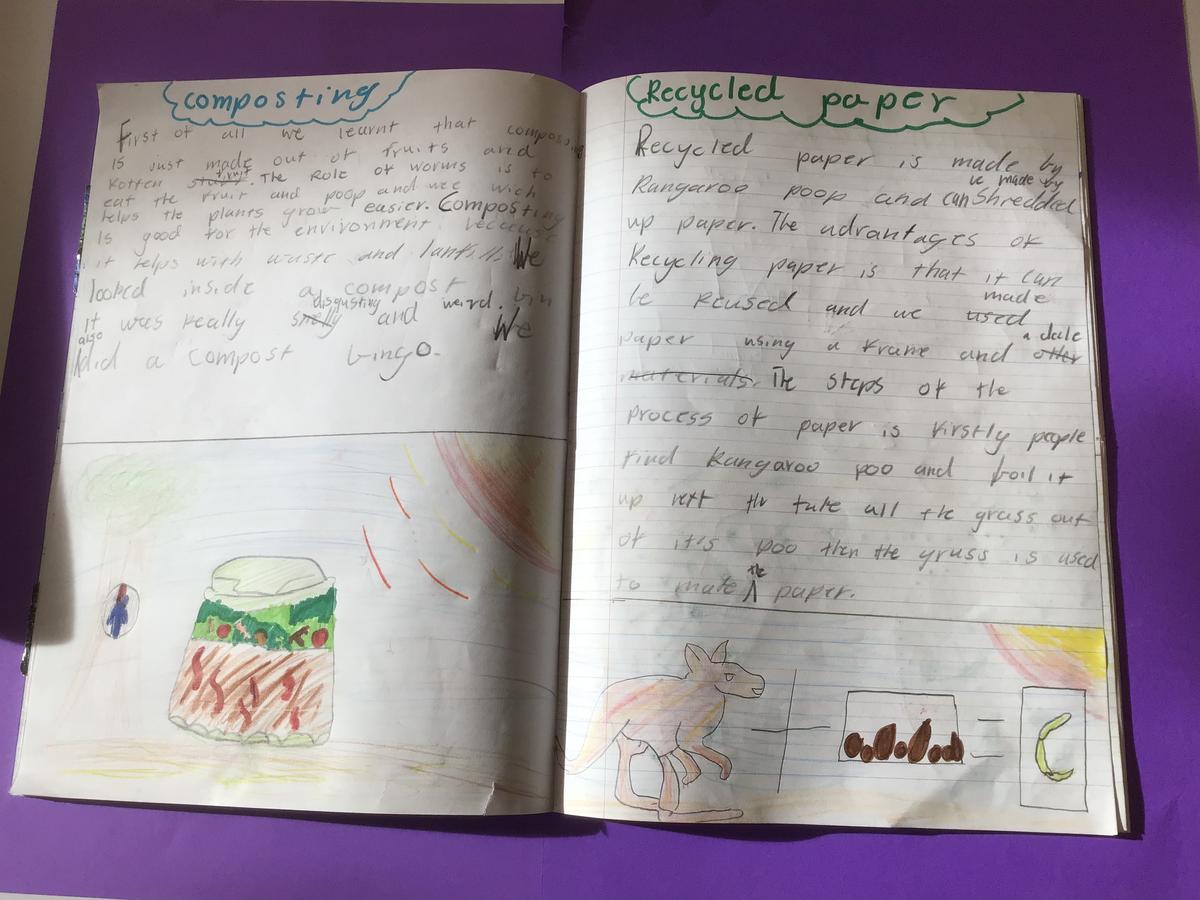 composting
First of all we learnt that composting
Is just made out of fruits and
Rotten stuff fruit. The Role of worms is to
eat the fruit and poop and wee wich
helps the plants grow easier. Composting
Is good for the environment because
it helps with waste and lantfill. We
looked inside a compost bin
It was really smelly disgusting and weird. We
also did a compost bingo.
Recycled paper
Recycled paper is made by
Kangaroo poop and can be made by Shredded
up paper. The advantages of
Recycling paper is that it can
be Reused and we used made
paper using a frame and other a
materials. The steps of the
process of paper is firstly people
find Kangaroo poo and boil it
up next the take all the grass out
of it's poo then the grass is used
to make the paper.
C